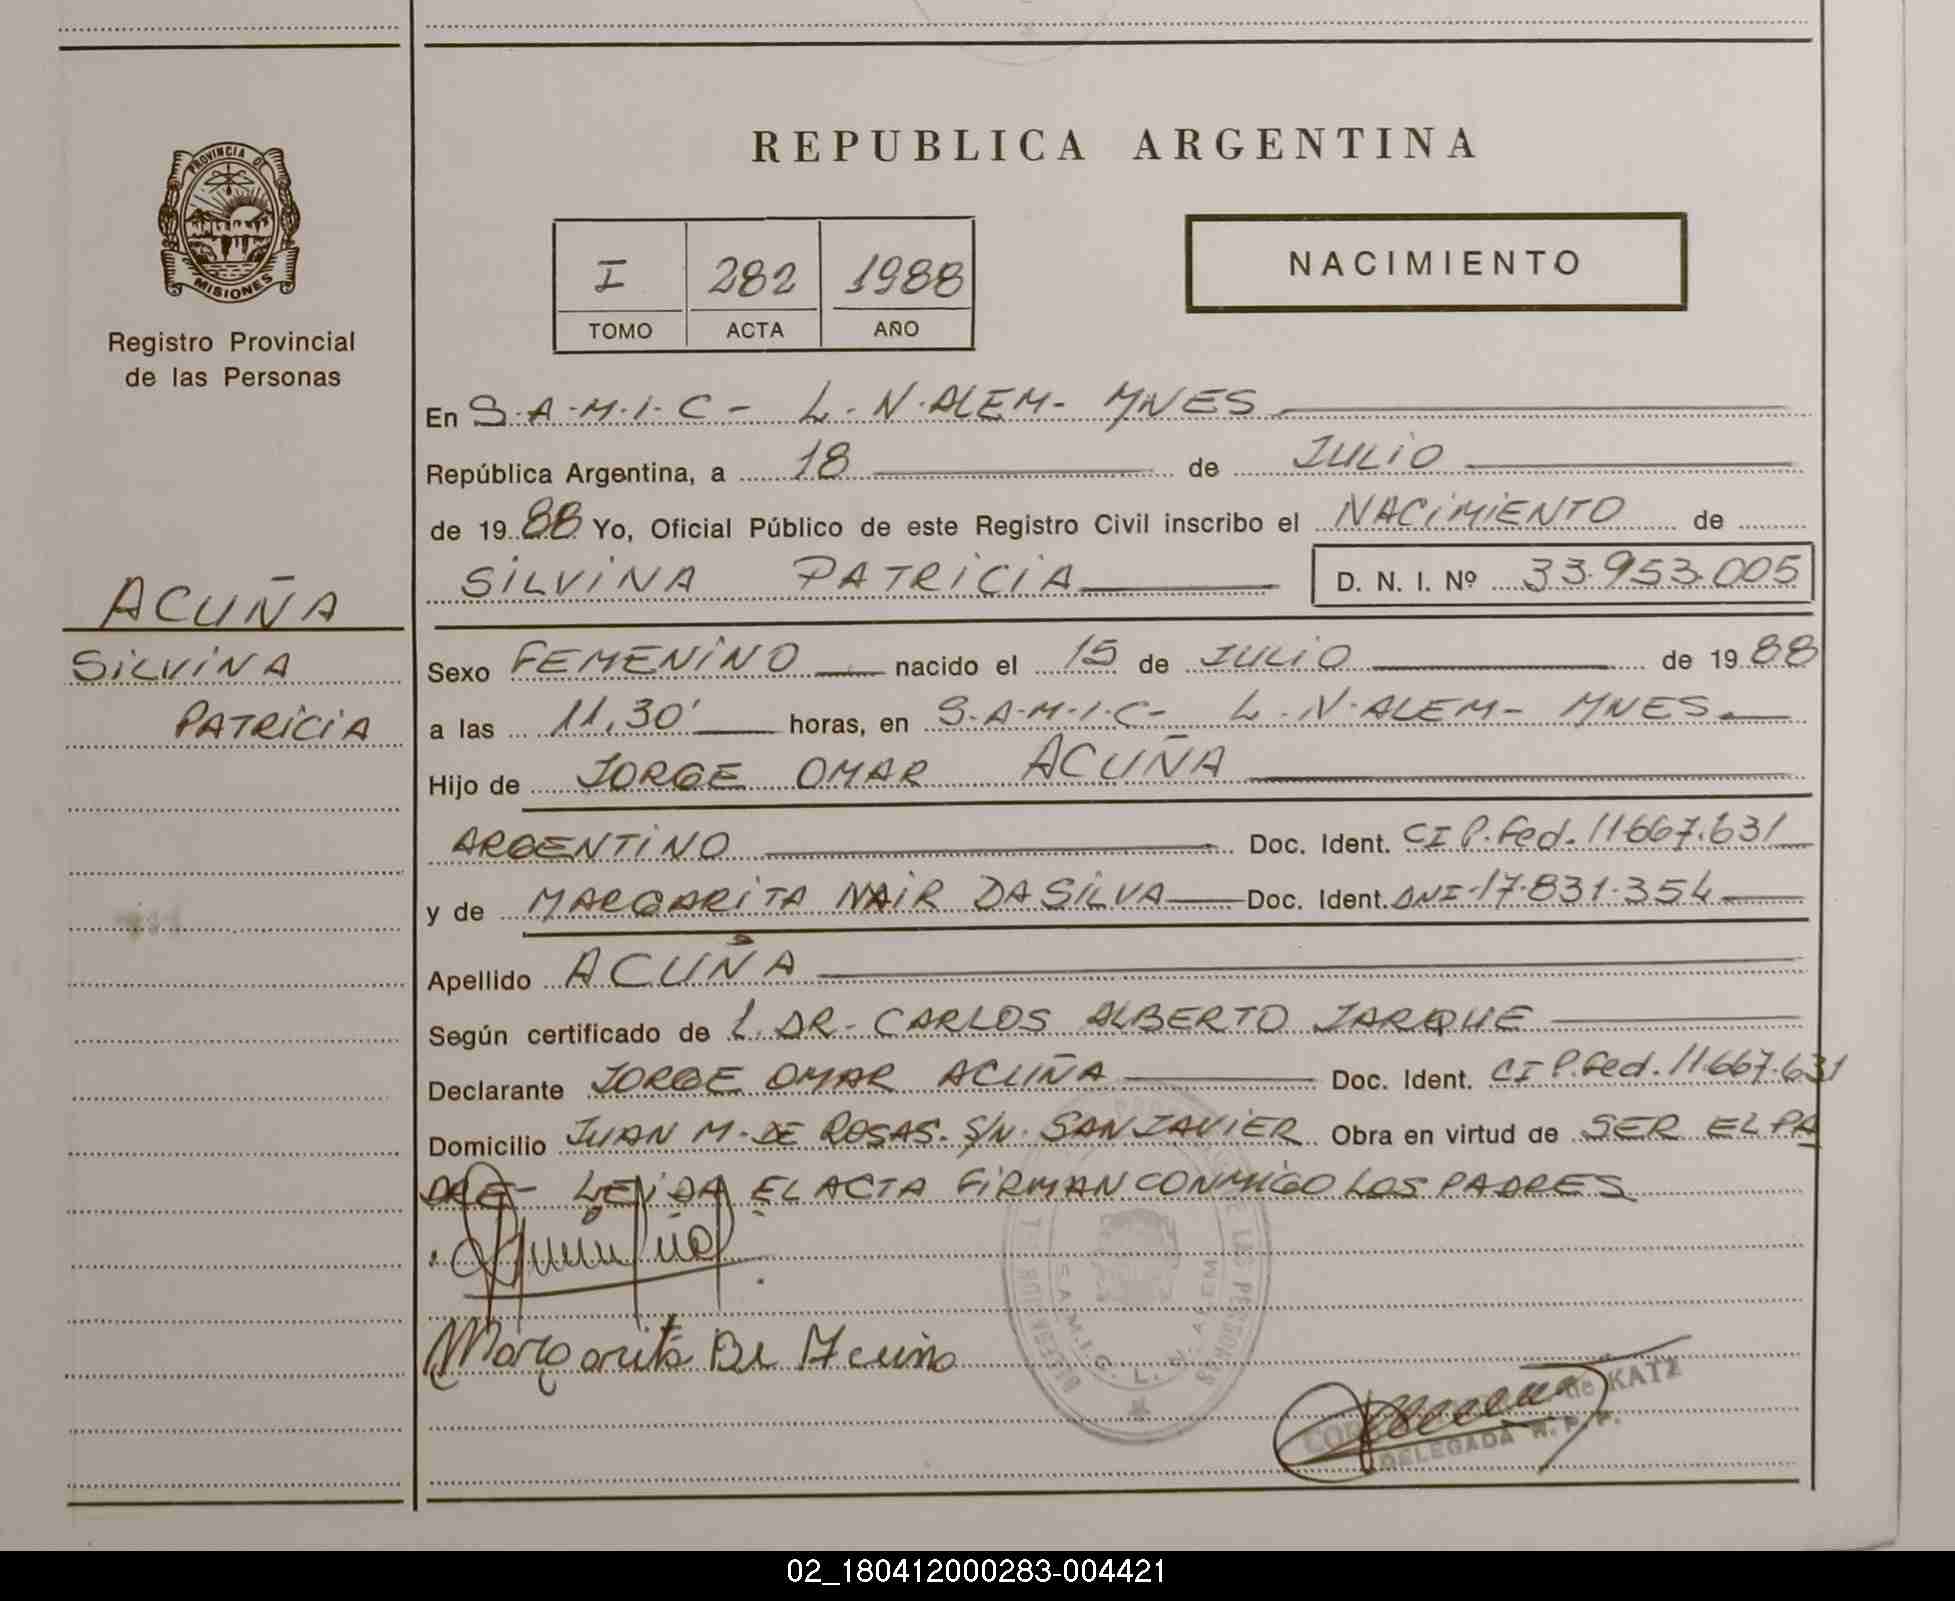 REPUBLICA ARGENTINA
PROVINCIA DE
MISIONES
Registro Provincial
de las Personas
I 282 1988
TOMO ACTA AÑO
NACIMIENTO
En S.A.M.I.C - L.N.ALEM- MNES
República Argentina, a 18 de JULIO
de 1988 Yo, Oficial Público de este Registro Civil inscribo el NACIMIENTO de
SILVINA PATRICIA D. N. I. Nº 33.953.005
ACUÑA
SILVINA
PATRICIA
Sexo FEMENINO nacido el 15 de JULIO de 1988
a las 11,30' horas, en S.A.M.I.C- L.N.ALEM- MNES.
Hijo de JORGE OMAR ACUÑA
ARGENTINO Doc. Ident. CI P.Fed. 11.667.631
y de MARGARITA NAIR DA SILVA Doc. Ident. DNI-17.831.354
Apellido ACUÑA
Según certificado de L. DR. CARLOS ALBERTO JARQUE
Declarante JORGE OMAR ACUÑA Doc. Ident. CI P.Fed. 11.667.631
Domicilio JUAN M. DE ROSAS. S/N. SAN JAVIER Obra en virtud de SER EL PA
DRE- LEIDA EL ACTA FIRMAN CONMIGO LOS PADRES
Margarita De Acuña
S.A.M.I.C. L. N. ALEM
DE LAS PERSONAS
de KATZ
DELEGADA R. P. P.
02_180412000283-004421